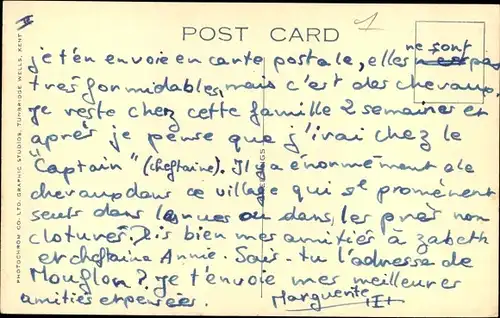 POST CARD
1
II
je t'en envoie en carte postale, elles ne sont pas
très formidables, mais c'est des chevaux.
je reste chez cette famille 2 semaines et
après je pense que j'irai chez le
"Captain" (cheftaine). Il y a énormément de
chevaux dans ce village qui se promènent
seuls dans les rues ou dans, les près non
cloturés. Dis bien mes amitiés à zabeth
et cheftaine Annie. Sais-tu l'adresse de
Mouflon? je t'envoie mes meilleures
amitiés et pensées. Marguerite
PHOTOCHROM CO. LTD. GRAPHIC STUDIOS, TUNBRIDGE WELLS, KENT